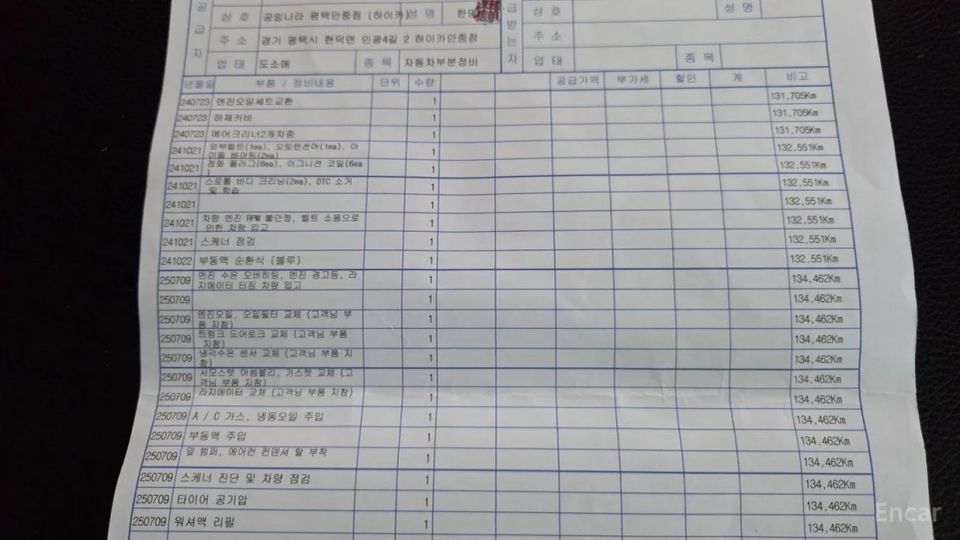 공급자
상 호 공임나라 평택안중점 (하이카) 성 명
주 소 경기 평택시 현덕면 인광4길 2 하이카안중점
업 태 도소매 종 목 자동차부분정비
급받는자
상 호 성 명
주 소
업 태 종 목
년월일 부품 / 정비내용 단위 수량 공급가액 부가세 할인 계 비고
240723 엔진오일세트교환 1 131,705Km
240723 하체카바 1 131,705Km
240723 에어크리너2개차종 1 131,705Km
241021 외부벨트(1ea), 오토텐션어(1ea), 아이들 베어링(2ea) 1 132,551Km
241021 점화 플러그(6ea), 이그니션 코일(6ea) 1 132,551Km
241021 스로틀 바디 크리닝(2ea), DTC 소거 및 학습 1 132,551Km
241021 1 132,551Km
241021 차량 엔진 RPM 불안정, 벨트 소음으로 인한 차량 입고 1 132,551Km
241021 스케너 점검 1 132,551Km
241022 부동액 순환식 (블루) 1 132,551Km
250709 엔진 수온 오버히팅, 엔진 경고등, 라지에이터 터짐 차량 입고 1 134,462Km
250709 1 134,462Km
250709 엔진오일, 오일필터 교체 (고객님 부품 지참) 1 134,462Km
250709 트렁크 도어로크 교체 (고객님 부품 지참) 1 134,462Km
250709 냉각수온 센서 교체 (고객님 부품 지참) 1 134,462Km
250709 서모스텟 어셈블리, 가스켓 교체 (고객님 부품 지참) 1 134,462Km
250709 라지에이터 교체 (고객님 부품 지참) 1 134,462Km
250709 A / C 가스, 냉동오일 주입 1 134,462Km
250709 부동액 주입 1 134,462Km
250709 앞 범퍼, 에어컨 컨덴셔 탈 부착 1 134,462Km
250709 스케너 진단 및 차량 점검 1 134,462Km
250709 타이어 공기압 1 134,462Km
250709 워셔액 리필 1 134,462Km
Encar